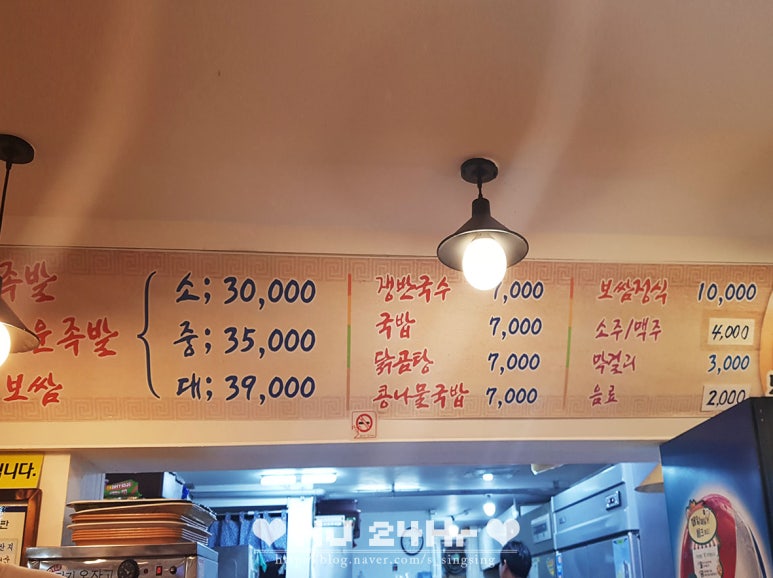 족발
운족발
보쌈
소; 30,000
중; 35,000
대; 39,000
쟁반국수 7,000
국밥 7,000
닭곰탕 7,000
콩나물국밥 7,000
보쌈정식 10,000
소주/맥주 4,000
막걸리 3,000
음료 2,000
니다.
HJ 24Hr
http://blog.naver.com/st.singsing